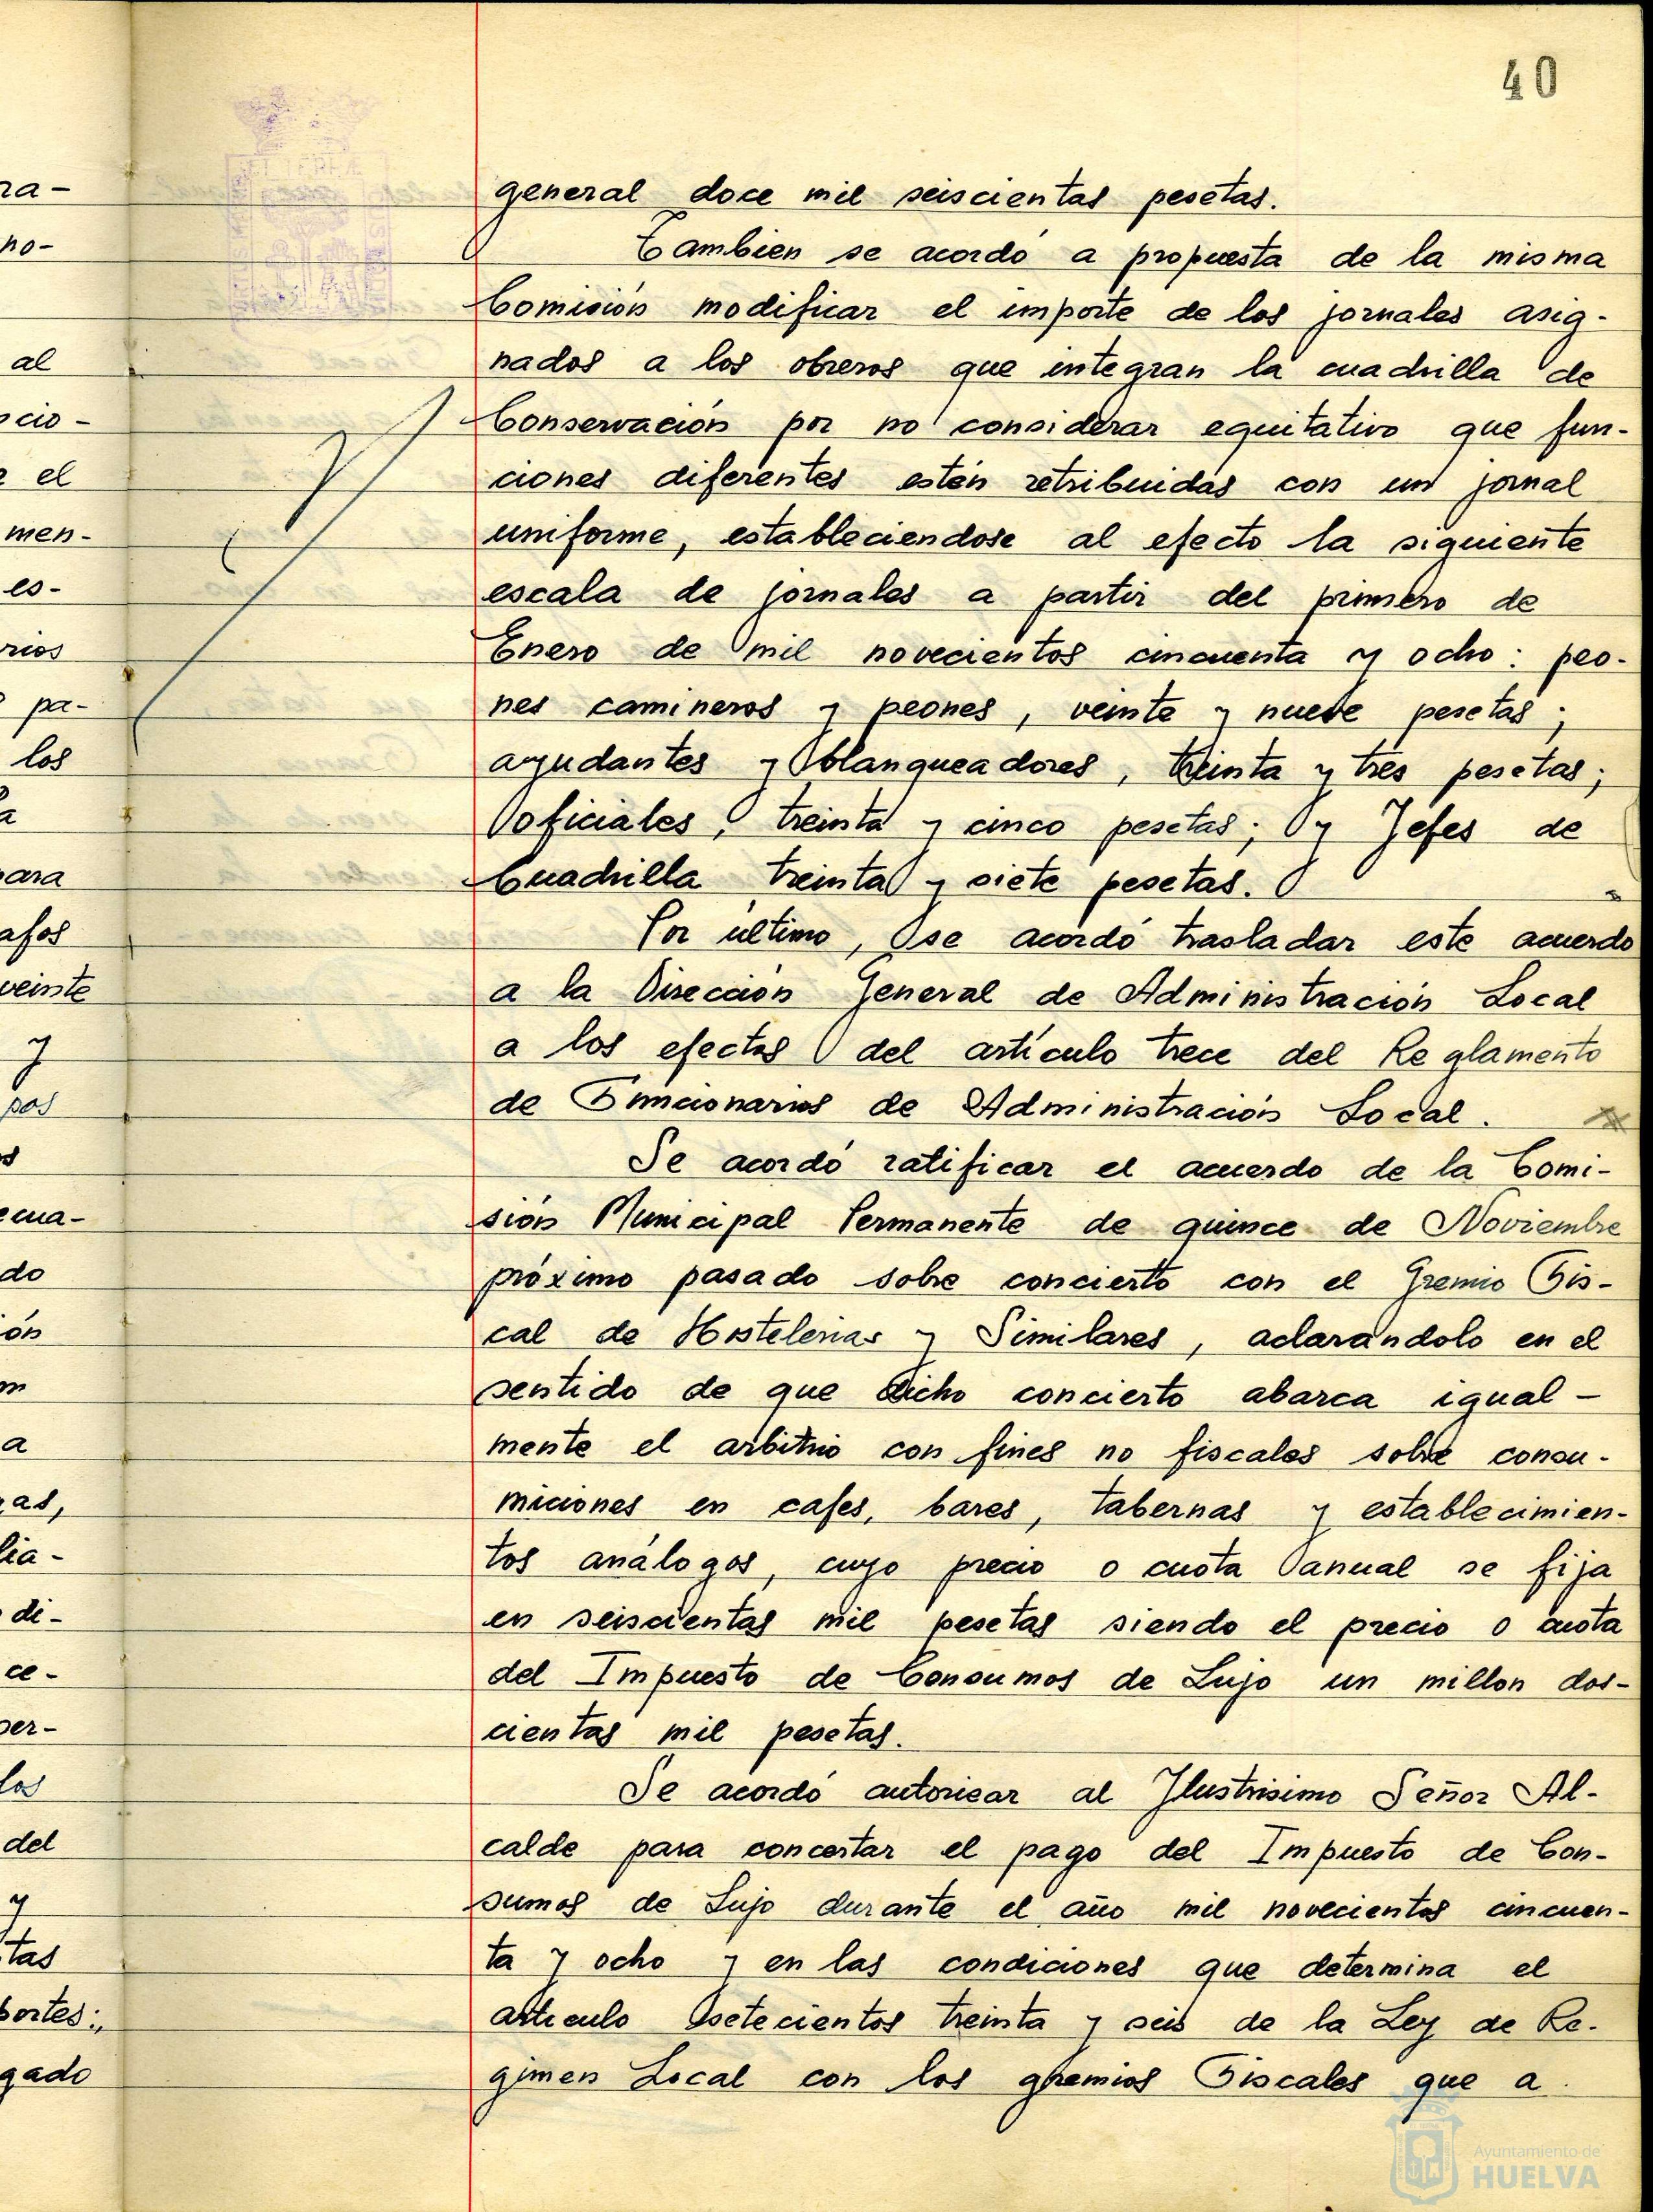 40
general doce mil seiscientas pesetas.
Tambien se acordó a propuesta de la misma
Comisión modificar el importe de los jornales asig-
nados a los obreros que integran la cuadrilla de
Conservación por no considerar equitativo que fun-
ciones diferentes estén retribuidas con un jornal
uniforme, estableciendose al efecto la siguiente
escala de jornales a partir del primero de
Enero de mil novecientos cincuenta y ocho: peo-
nes camineros y peones, veinte y nueve pesetas;
ayudantes y blanqueadores, treinta y tres pesetas;
oficiales, treinta y cinco pesetas; y Jefes de
Cuadrilla treinta y siete pesetas.
Por último, se acordó trasladar este acuerdo
a la Dirección General de Administración Local
a los efectos del artículo trece del Reglamento
de Funcionarios de Administración Local.
Se acordó ratificar el acuerdo de la Comi-
sión Municipal Permanente de quince de Noviembre
próximo pasado sobre concierto con el Gremio Fis-
cal de Hostelerias y Similares, aclarándolo en el
sentido de que dicho concierto abarca igual-
mente el arbitrio con fines no fiscales sobre consu-
miciones en cafes, bares, tabernas y establecimien-
tos análogos, cuyo precio o cuota anual se fija
en seiscientas mil pesetas siendo el precio o cuota
del Impuesto de Consumos de Lujo un millon dos-
cientas mil pesetas.
Se acordó autorizar al Ilustrisimo Señor Al-
calde para concertar el pago del Impuesto de Con-
sumos de Lujo durante el año mil novecientos cincuen-
ta y ocho y en las condiciones que determina el
articulo setecientos treinta y seis de la Ley de Re-
gimen Local con los gremios Fiscales que a
ra-
no-
al
cio-
el
men-
es-
rios
pa-
los
a
ara
afos
veinte
y
pos
cua-
do
ión
m
a
ras,
lia-
di-
ce-
per-
los
del
y
tas
portes:,
gado
Ayuntamiento de
HUELVA